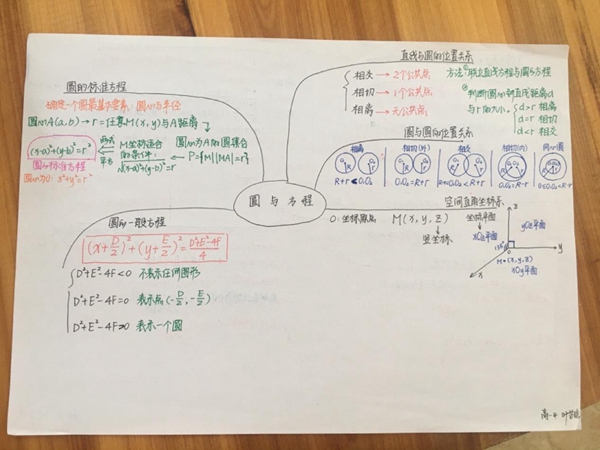 圆的标准方程
确定一个圆最基本要素:圆心与半径
圆心A(a,b)→r=任意M(x,y)与A距离
(x-a)²+(y-b)²=r²
两边
平方
M坐标适合
的条件:
√(x-a)²+(y-b)²=r
圆心为A的圆集合
P={M||MA|=r}
圆的标准方程
圆心为O: x²+y²=r²
圆与方程
圆的一般方程
(x+D/2)²+(y+E/2)²=D²+E²-4F/4
D²+E²-4F<0 不表示任何图形
D²+E²-4F=0 表示点(-D/2,-E/2)
D²+E²-4F>0 表示一个圆
直线与圆的位置关系
相交→2个公共点
相切→1个公共点
相离→无公共点
方法①联立直线方程与圆的方程
②判断圆心到直线距离d
与r的大小
d>r 相离
d=r 相切
d<r 相交
圆与圆的位置关系
相离 相切(外) 相交 相切(内)
O₁O₂=R+r
空间直角坐标系
O:坐标原点 M(x,y,z) 坐标平面
竖坐标
xOz平面
yOz平面
z
y
x
O
135°
M(x,y,z)
xOy平面